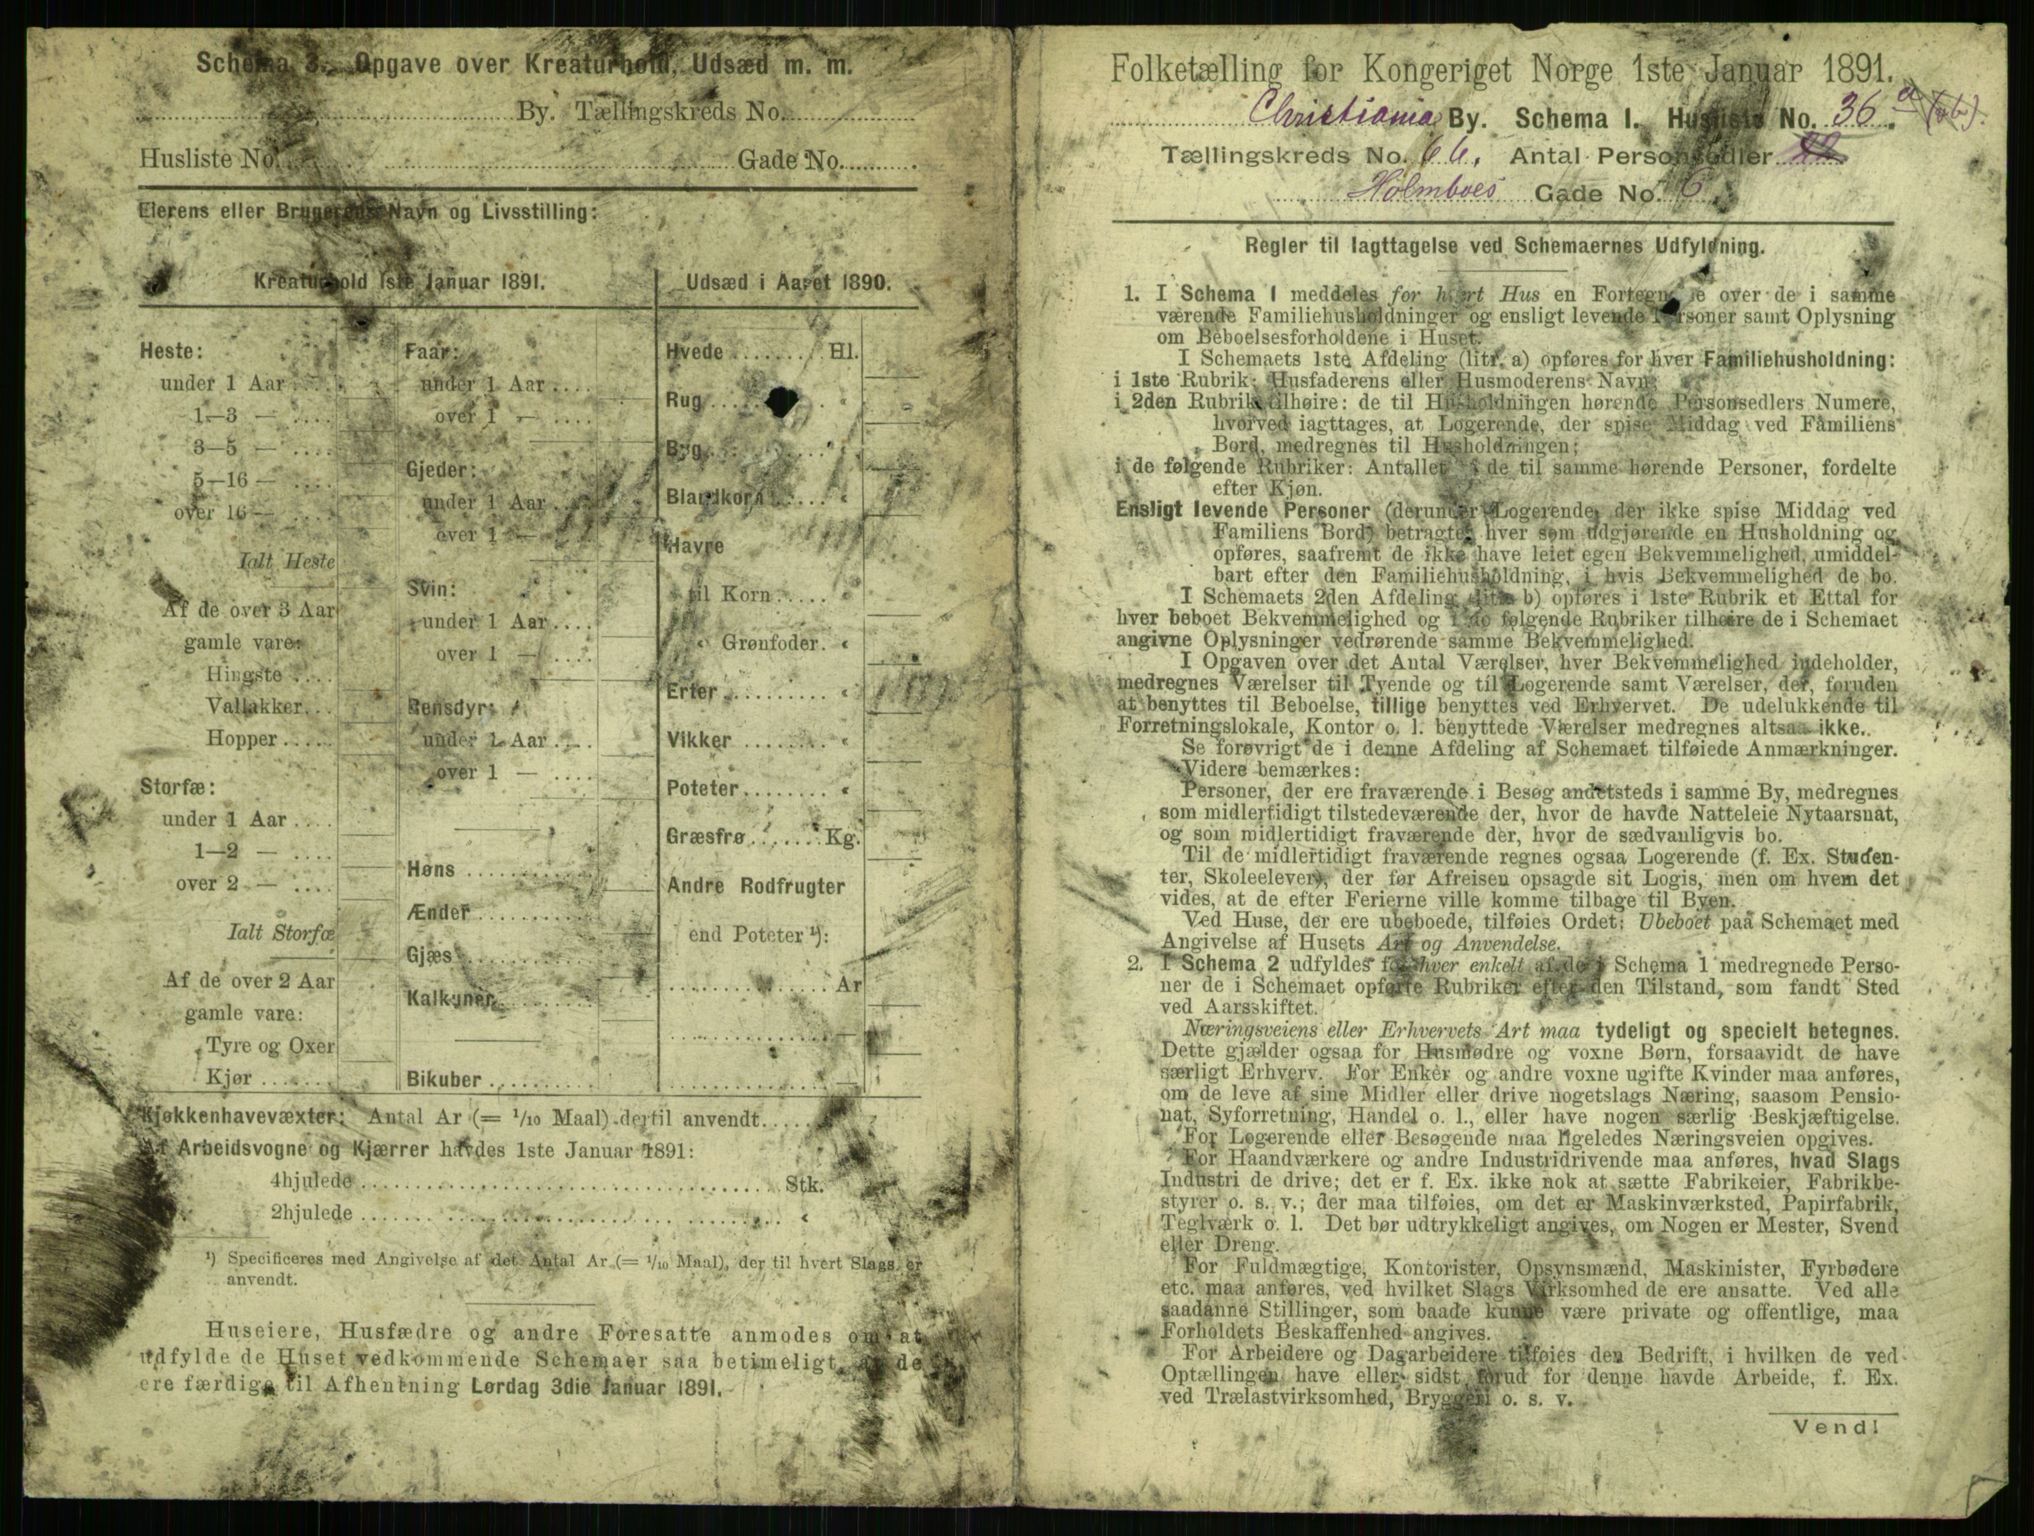 Schema 3. Opgave over Kreaturhold, Udsæd m. m.
By. Tællingskreds No.
Husliste No. Gade No.
Eierens eller Brugerens Navn og Livsstilling:
Kreaturhold 1ste Januar 1891.
Heste:
under 1 Aar
1—3 —
3—5 —
5—16 —
over 16 —
Ialt Heste
Af de over 3 Aar
gamle vare:
Hingste
Vallakker
Hopper
Storfæ:
under 1 Aar
1—2 —
over 2 —
Ialt Storfæ
Af de over 2 Aar
gamle vare:
Tyre og Oxer
Kjør
Faar:
under 1 Aar
over 1 —
Gjeder:
under 1 Aar
over 1 —
Svin:
under 1 Aar
over 1 —
Rensdyr:
under 1 Aar
over 1 —
Høns
Ænder
Gjæs
Kalkuner
Bikuber
Udsæd i Aaret 1890.
Hvede Hl.
Rug "
Byg "
Blandkorn "
Havre
til Korn "
" Grønfoder "
Erter "
Vikker "
Poteter "
Græsfrø Kg.
Andre Rodfrugter
end Poteter ¹):
Ar
—
—
Kjøkkenhavevæxter: Antal Ar (= 1/10 Maal) dertil anvendt
Af Arbeidsvogne og Kjærrer havdes 1ste Januar 1891:
4hjulede Stk.
2hjulede "
¹) Specificeres med Angivelse af det Antal Ar (= 1/10 Maal), der til hvert Slags er
anvendt.
Huseiere, Husfædre og andre Foresatte anmodes om at
udfylde de Huset vedkommende Schemaer saa betimeligt, at de
ere færdige til Afhentning Lørdag 3die Januar 1891.
Folketælling for Kongeriget Norge 1ste Januar 1891.
Christiania By. Schema 1. Husliste No. 36 a
Tællingskreds No. 66. Antal Personsedler
Holmboes Gade No. 6
Regler til Iagttagelse ved Schemaernes Udfyldning.
1. I Schema 1 meddeles for hvert Hus en Fortegnelse over de i samme
værende Familiehusholdninger og ensligt levende Personer samt Oplysning
om Beboelsesforholdene i Huset.
I Schemaets 1ste Afdeling (litr. a) opføres for hver Familiehusholdning:
i 1ste Rubrik: Husfaderens eller Husmoderens Navn;
i 2den Rubrik tilhøire: de til Husholdningen hørende Personsedlers Numere,
hvorved iagttages, at Logerende, der spise Middag ved Familiens
Bord, medregnes til Husholdningen;
i de følgende Rubriker: Antallet af de til samme hørende Personer, fordelte
efter Kjøn.
Ensligt levende Personer (derunder Logerende, der ikke spise Middag ved
Familiens Bord) betragtes hver som udgjørende en Husholdning og
opføres, saafremt de ikke have leiet egen Bekvemmelighed, umiddel-
bart efter den Familiehusholdning, i hvis Bekvemmelighed de bo.
I Schemaets 2den Afdeling (litr. b) opføres i 1ste Rubrik et Ettal for
hver beboet Bekvemmelighed og i de følgende Rubriker tilhøire de i Schemaet
angivne Oplysninger vedrørende samme Bekvemmelighed.
I Opgaven over det Antal Værelser, hver Bekvemmelighed indeholder,
medregnes Værelser til Tyende og til Logerende samt Værelser, der, foruden
at benyttes til Beboelse, tillige benyttes ved Erhvervet. De udelukkende til
Forretningslokale, Kontor o. l. benyttede Værelser medregnes altsaa ikke.
Se forøvrigt de i denne Afdeling af Schemaet tilføiede Anmærkninger.
Videre bemærkes:
Personer, der ere fraværende i Besøg andetsteds i samme By, medregnes
som midlertidigt tilstedeværende der, hvor de havde Natteleie Nytaarsnat,
og som midlertidigt fraværende der, hvor de sædvanligvis bo.
Til de midlertidigt fraværende regnes ogsaa Logerende (f. Ex. Studen-
ter, Skoleelever), der før Afreisen opsagde sit Logis, men om hvem det
vides, at de efter Ferierne ville komme tilbage til Byen.
Ved Huse, der ere ubeboede, tilføies Ordet: Ubeboet paa Schemaet med
Angivelse af Husets Art og Anvendelse.
2. I Schema 2 udfyldes for hver enkelt af de i Schema 1 medregnede Perso-
ner de i Schemaet opførte Rubriker efter den Tilstand, som fandt Sted
ved Aarsskiftet.
Næringsveiens eller Erhvervets Art maa tydeligt og specielt betegnes.
Dette gjælder ogsaa for Husmødre og voxne Børn, forsaavidt de have
særligt Erhverv. For Enker og andre voxne ugifte Kvinder maa anføres,
om de leve af sine Midler eller drive nogetslags Næring, saasom Pensio-
nat, Syforretning, Handel o. l., eller have nogen særlig Beskjæftigelse.
For Logerende eller Besøgende maa ligeledes Næringsveien opgives.
For Haandværkere og andre Industridrivende maa anføres, hvad Slags
Industri de drive; det er f. Ex. ikke nok at sætte Fabrikeier, Fabrikbe-
styrer o. s. v.; der maa tilføies, om det er Maskinværksted, Papirfabrik,
Teglværk o. l. Det bør udtrykkeligt angives, om Nogen er Mester, Svend
eller Dreng.
For Fuldmægtige, Kontorister, Opsynsmænd, Maskinister, Fyrbødere
etc. maa anføres, ved hvilket Slags Virksomhed de ere ansatte. Ved alle
saadanne Stillinger, som baade kunne være private og offentlige, maa
Forholdets Beskaffenhed angives.
For Arbeidere og Dagarbeidere tilføies den Bedrift, i hvilken de ved
Optællingen have eller sidst forud for denne havde Arbeide, f. Ex.
ved Trælastvirksomhed, Bryggeri o. s. v.
Vend!